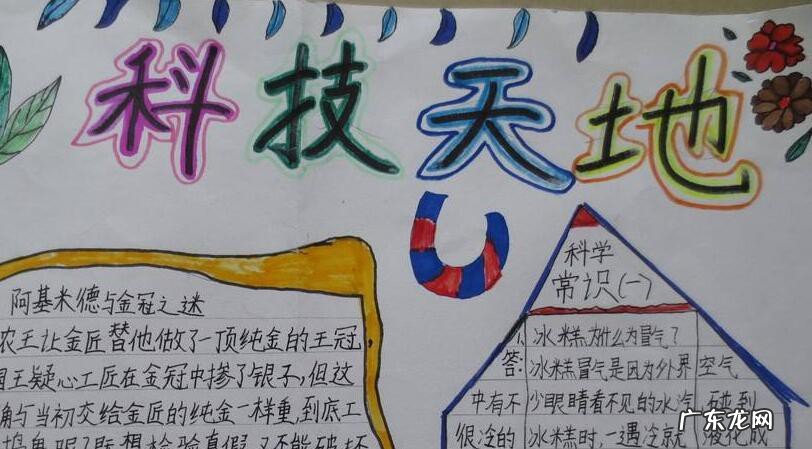 科技天地
阿基米德与金冠之迷
农王让金匠替他做了一顶纯金的王冠,
国王疑心工匠在金冠中掺了银子,但这
角与当初交给金匠的纯金一样重,到底工
捣鬼呢?既想检验真假,又不能破坏
科学
常识(一)
1、冰糕为什么冒气?
答:冰糕冒气是因为外界空气
中有不少眼睛看不见的水汽,碰到
很冷的冰糕时,一遇冷就液化成
广东龙网